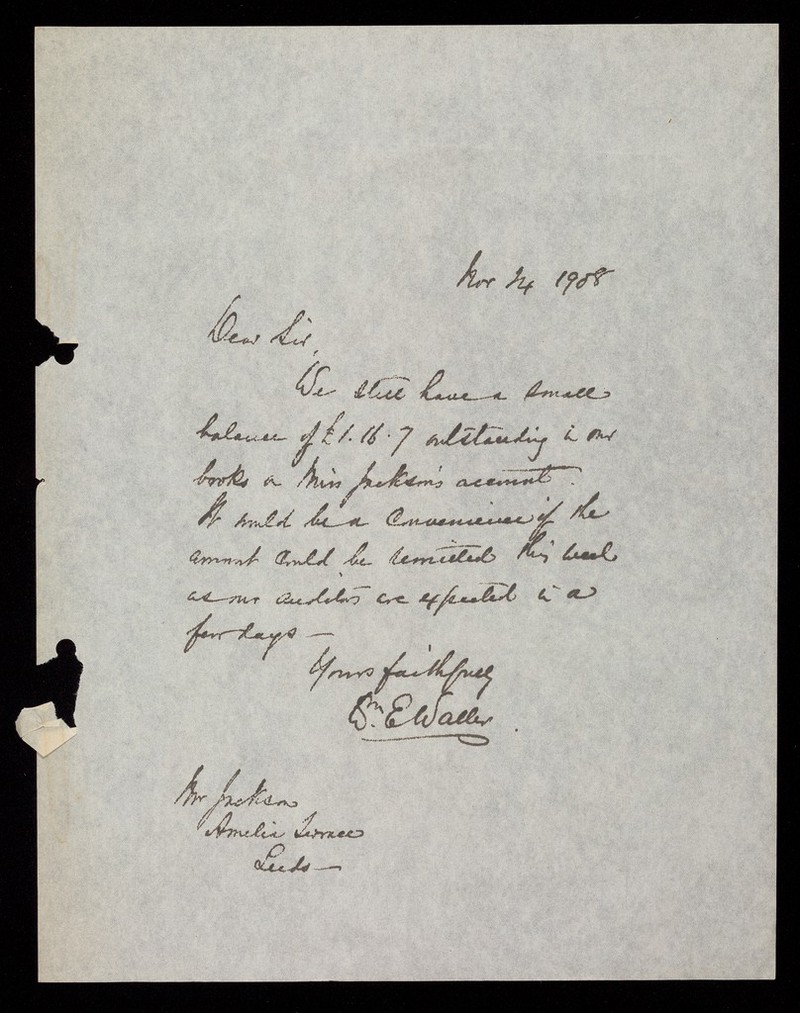 Nov 24 1908
Dear Sir,
We still have a small
balance of £1.16.7 outstanding in our
books on Miss Jackson's account.
It would be a convenience if the
amount could be remitted this week
as our auditors are expected in a
few days —
Yours faithfully
Wm. E Waller.
Mr Jackson
Amelia Terrace
Leeds —